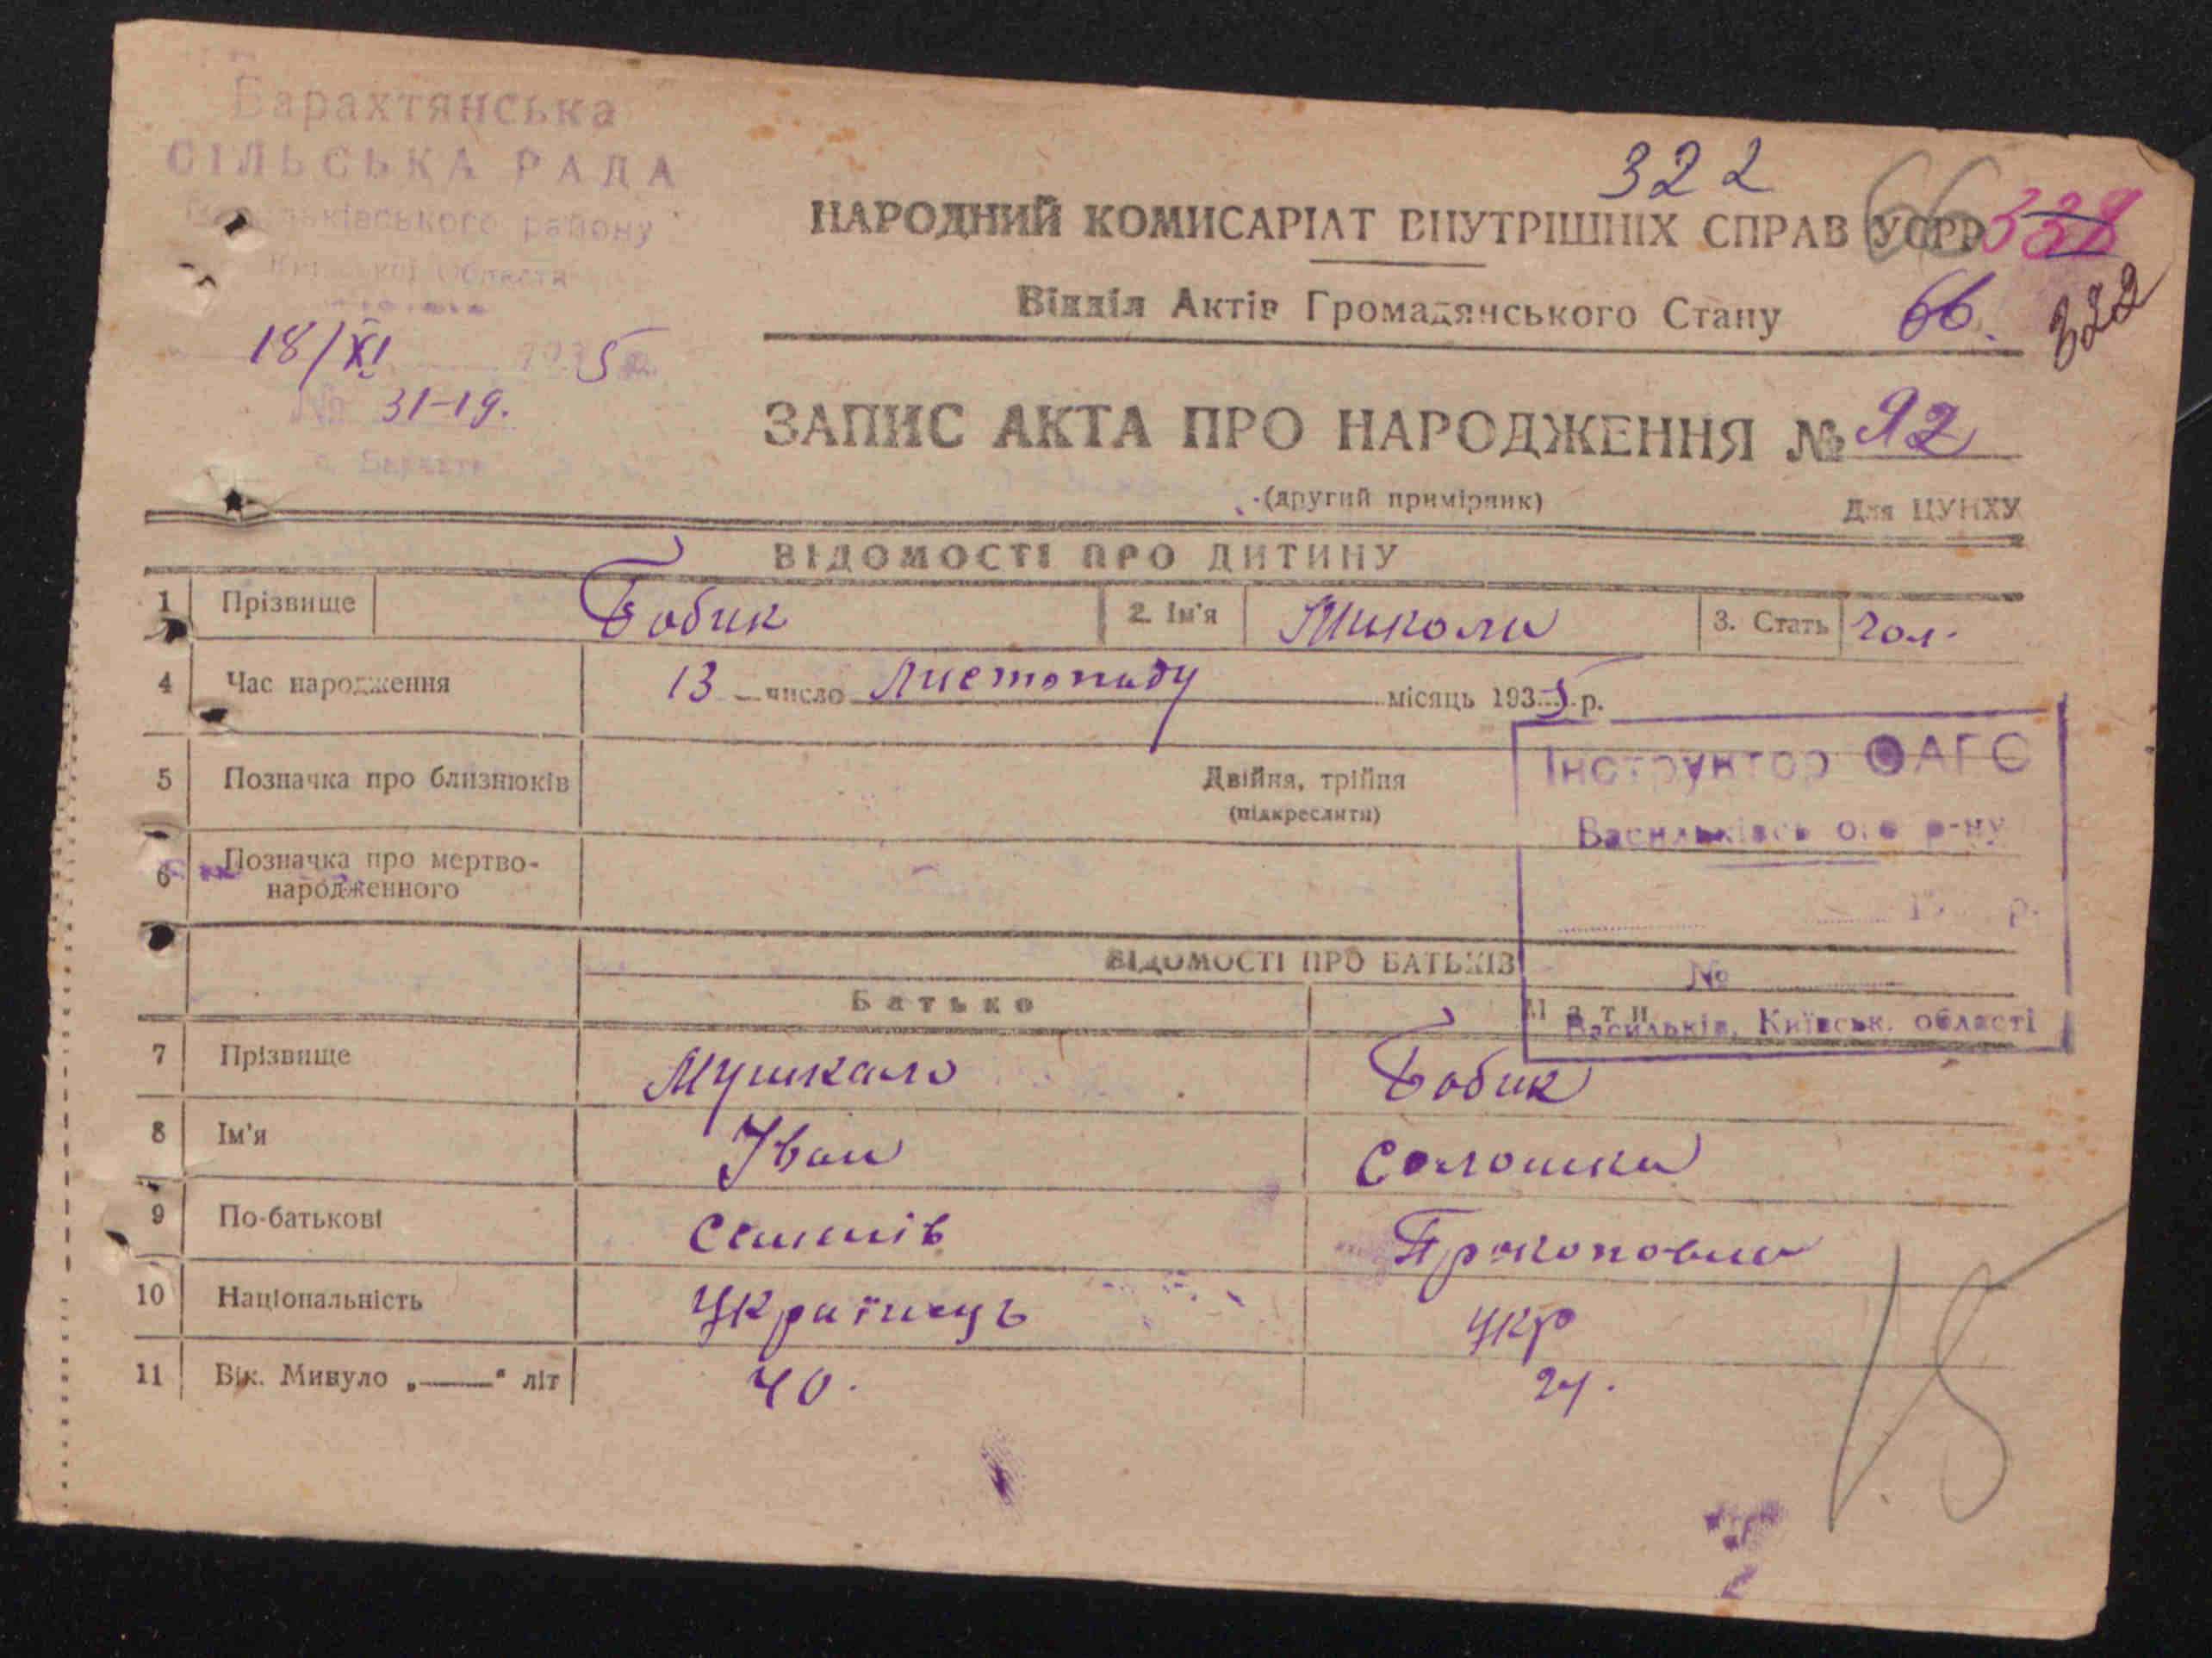 Барахтянська
СІЛЬСЬКА РАДА
Васильківського району
Київської Області
18/XI 1935
№ 31-19.
с. Барахти
322
66 338
НАРОДНИЙ КОМИСАРІАТ ВНУТРІШНІХ СПРАВ УСРР
Відділ Актів Громадянського Стану
66. 322
ЗАПИС АКТА ПРО НАРОДЖЕННЯ № 92
(другий примірник)
Для ЦУНХУ
ВІДОМОСТІ ПРО ДИТИНУ
1 Прізвище Бобик 2. Ім'я Микола 3. Стать чол.
4 Час народження 13 число Листопаду місяць 1935 р.
5 Позначка про близнюків Двійня, трійня
(підкреслити)
6 Позначка про мертво-
народженного
Інструктор ОАГС
Васильківського р-ну
19 р.
№
Васильків, Київськ. області
ВІДОМОСТІ ПРО БАТЬКІВ
Батько Мати
7 Прізвище Мушкало Бобик
8 Ім'я Іван Солошка
9 По-батькові Семенів Прокоповна
10 Національність Українець укр
11 Вік. Минуло „——" літ 40. 24.